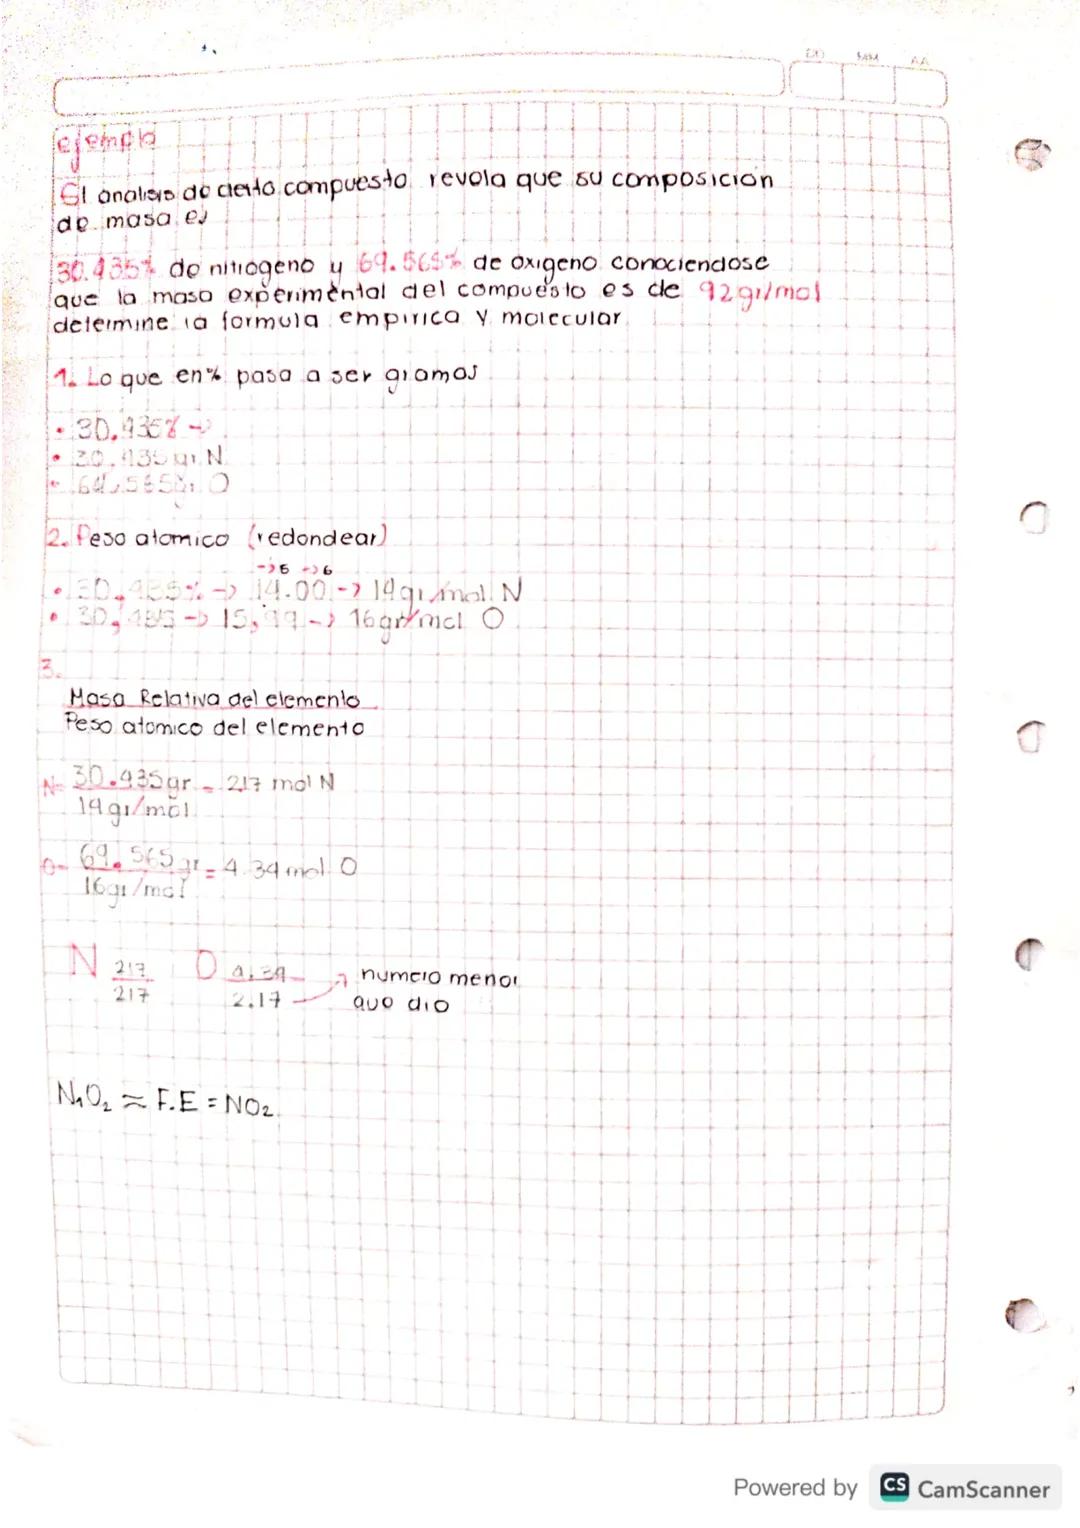 DD MM AA
ejemplo
El analisis de cierto compuesto revela que su composición
de masa es
30.435% de nitrogeno y 69.565% de oxigeno conociendose
que la masa experimental del compuesto es de 92gr/mol
determine la formula empirica y molecular
1. Lo que en % pasa a ser gramos
• 30.435% →
• 30.435 gr N
• 64.565gr O
2. Peso atomico (redondear)
→5 →6
• 30.435% → 14.00 → 14gr/mol N
• → 15,99 → 16gr/mol O
3.
Masa Relativa del elemento
Peso atomico del elemento
N= 30.435gr = 217 mol N
14gr/mol
O= 69.565gr = 4.34 mol O
16gr/mol
N 217 O 4.34 → numero menor
217 2.17 que dio
N₁O₂ ≈ F.E = NO₂
Powered by CS CamScanner